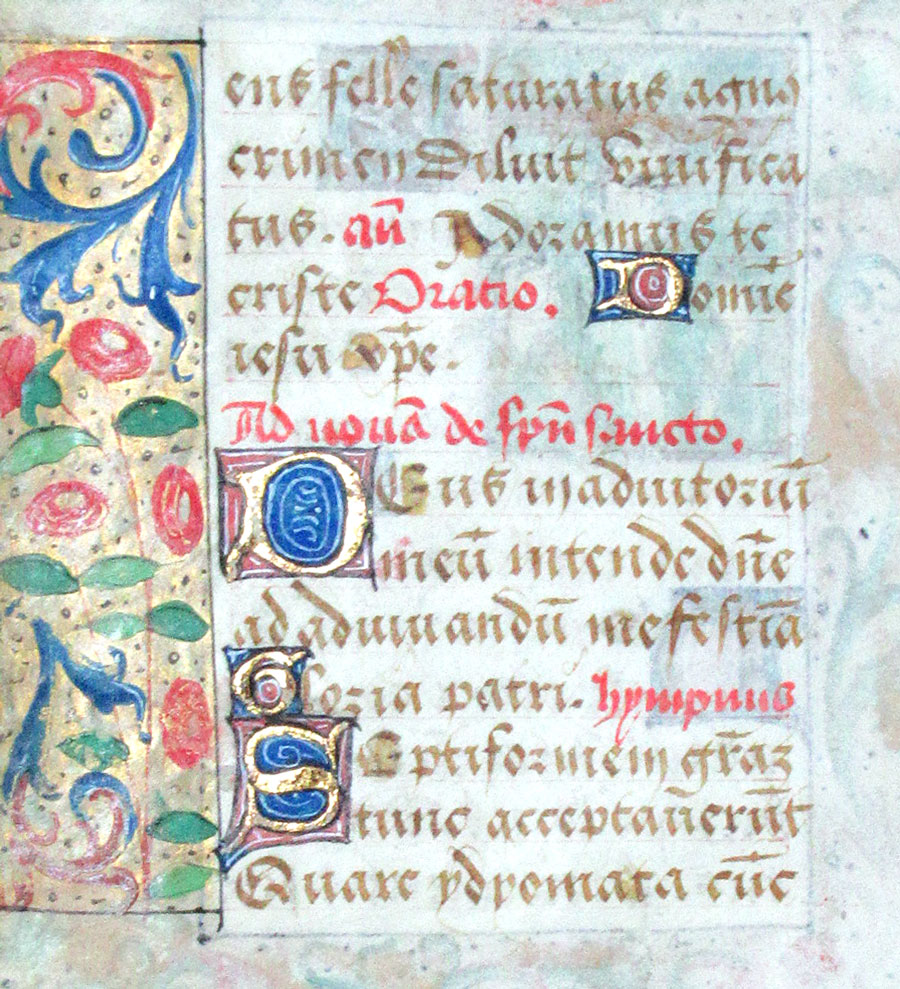 ens felle saturatus agno
crimen diluit vivifica
tus. añ Adoramus te
criste Oratio. Domie
iesu xp̄e.
Ad nonā de spū sancto.
Deus in adiutoriū
meū intende dn̄e
ad adiuuandū me festīa
Gloria patri. hympnus
Septiformem grāz
tunc acceptauerūt
Quare ydyomata cūc